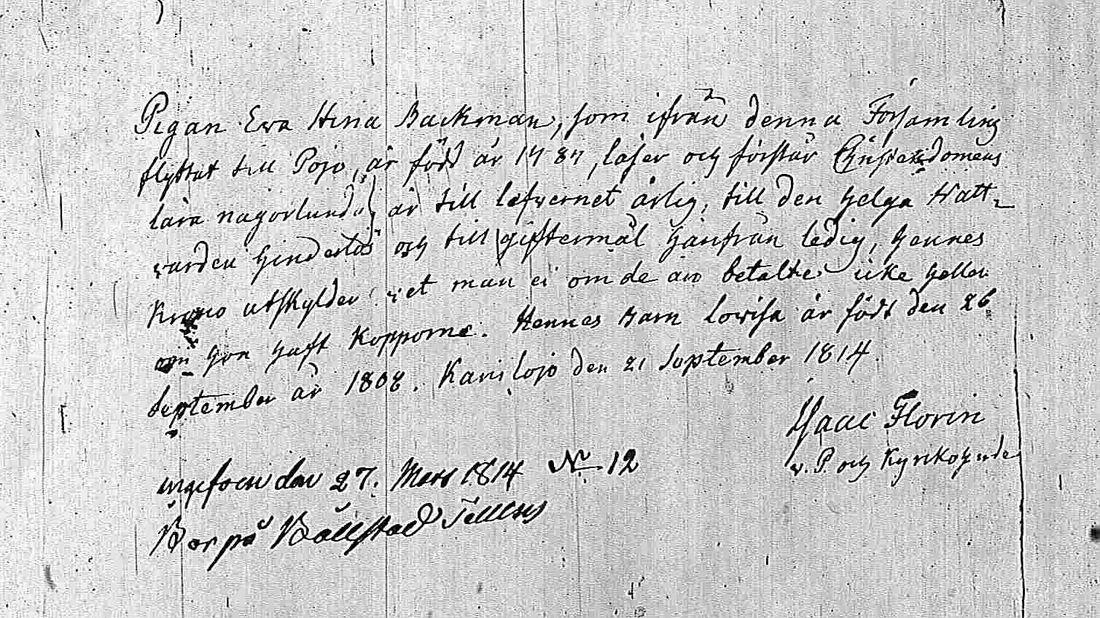 Pigan Eva Stina Backman, som ifrån denna Församling
flyttat till Pojo, är född år 1787, läser och förstår Christendomens
lära någorlunda, är till lefvernet ärlig, till den helga Natt-
varden hinderlös och till giftermål härifrån ledig, hennes
Krono utskylder vet man ei om de äro betalte icke heller
om hon haft Kopporne. Hennes Barn Lovisa är född den 26
September år 1808. Karislojo den 21 September 1814.
Isaac Florin
v. P. och Kyrkoherde
den 27. Mars 1814 No 12
Bor på Bållstad